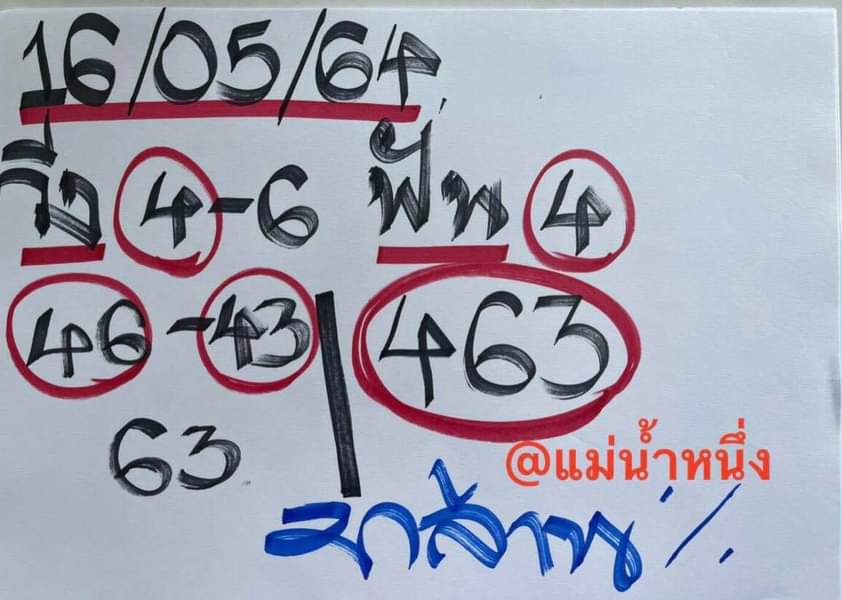 16/05/64
วิ่ง 4-6 ฟัน 4
46-43 463
63
@แม่น้ำหนึ่ง
ล้าน %